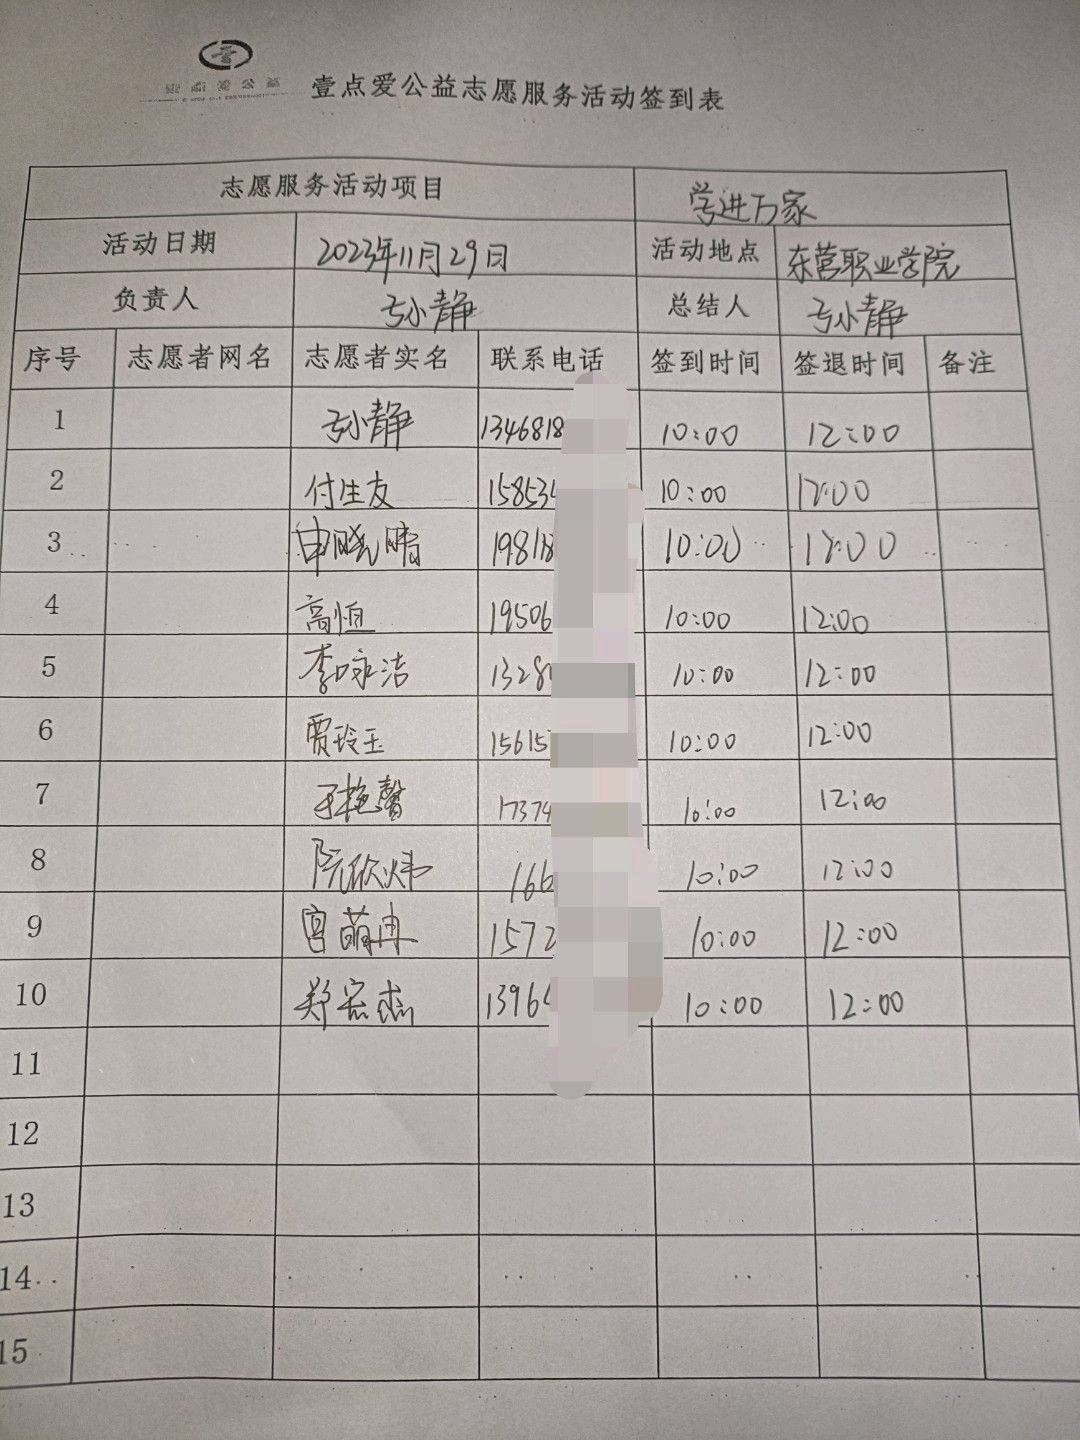 壹点爱公益志愿服务活动签到表
志愿服务活动项目 学进万家
活动日期 2023年11月29日 活动地点 东营职业学院
负责人 孙静 总结人 孙静
序号 志愿者网名 志愿者实名 联系电话 签到时间 签退时间 备注
1 孙静 1346818 10:00 12:00
2 付生友 158534 10:00 12:00
3 申晓晴 19818 10:00 12:00
4 高恒 19506 10:00 12:00
5 李咏洁 1328 10:00 12:00
6 贾玲玉 15615 10:00 12:00
7 17374 10:00 12:00
8 166 10:00 12:00
9 宫萌冉 1572 10:00 12:00
10 郑宏杰 1396 10:00 12:00
11
12
13
14
15